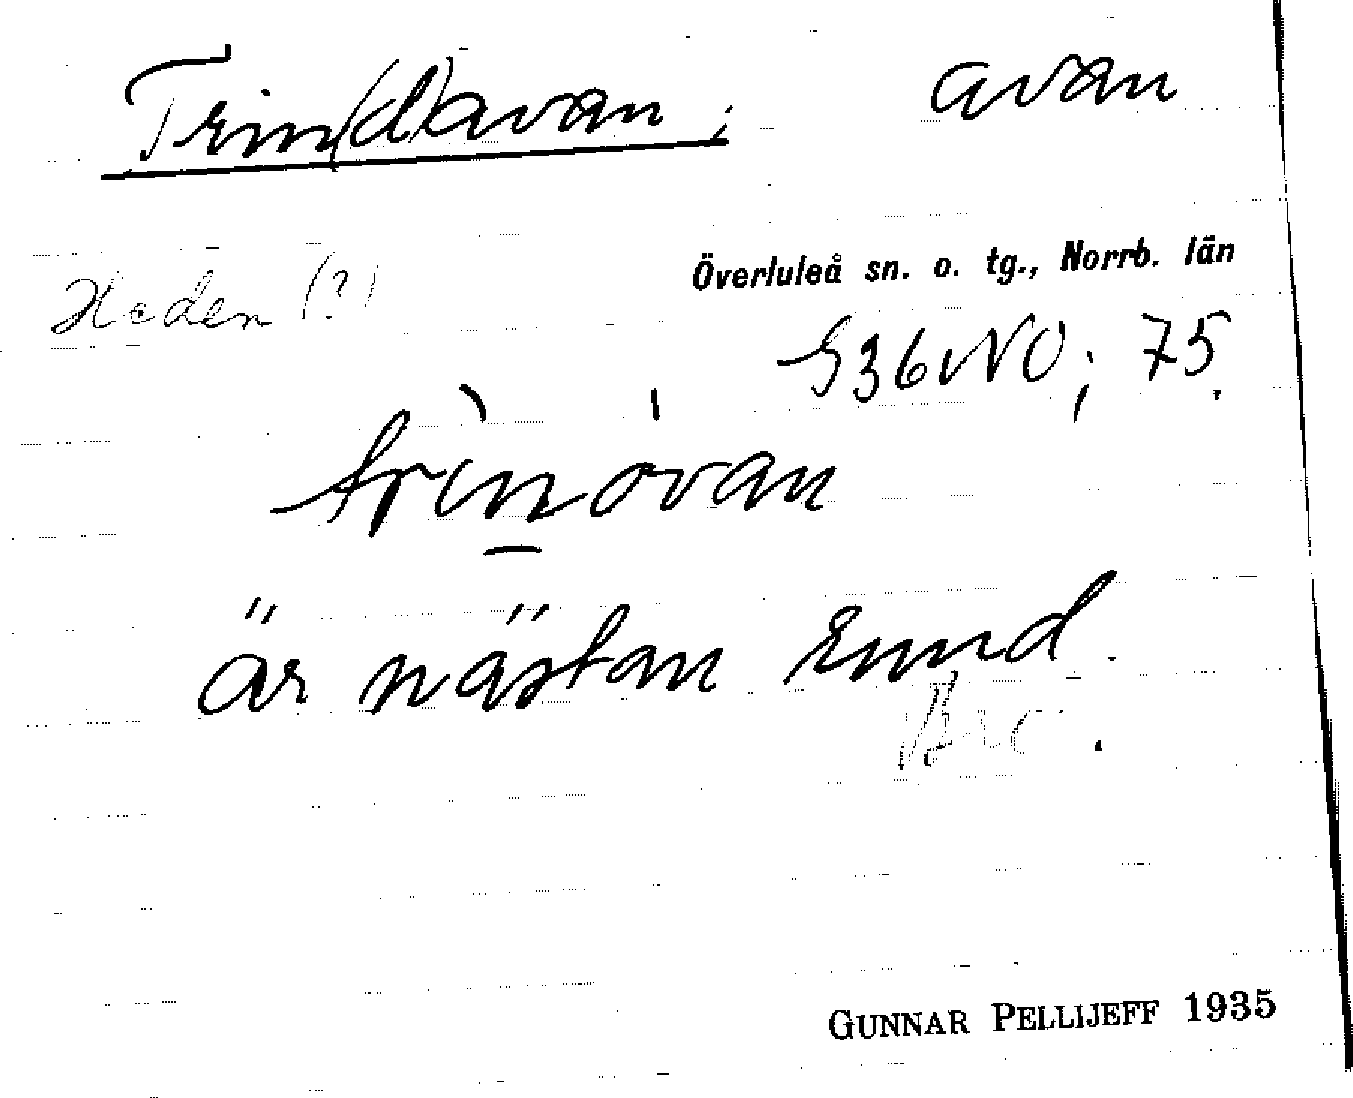 Trin(d)avan, avan
Heden (?)
Överluleå sn. o. tg., Norrb. län
S36NO; 75.
trinavan
är nästan rund.
GUNNAR PELLIJEFF 1935